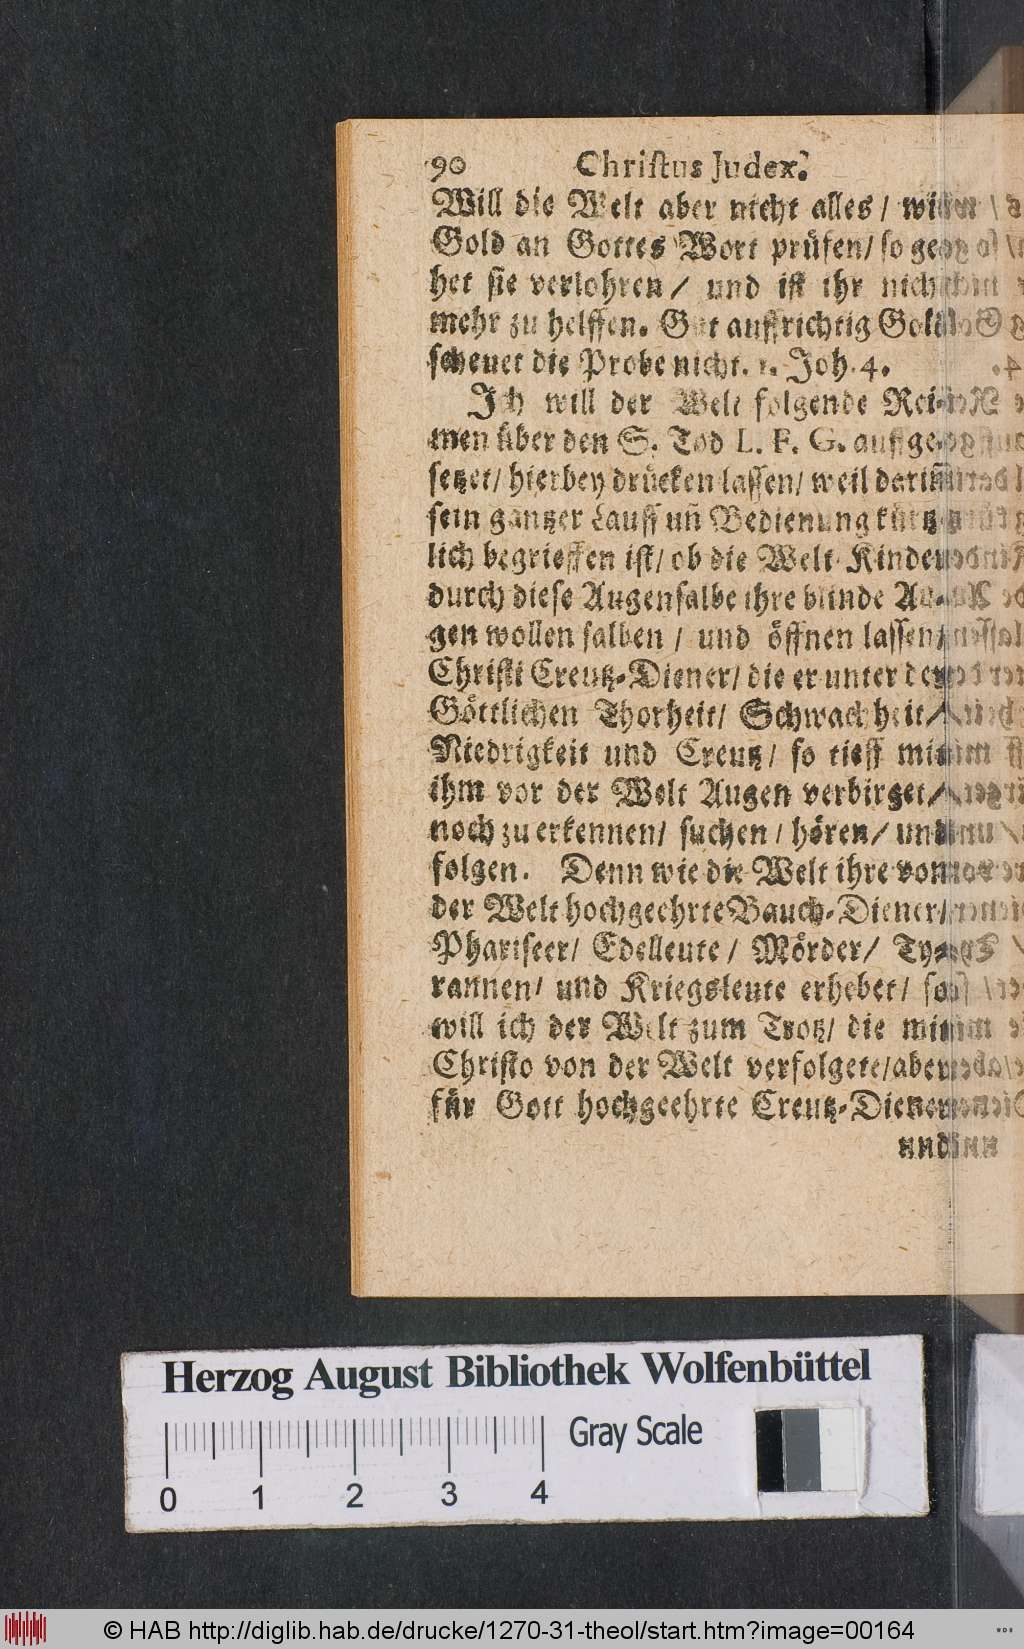 90 Christus Judex.
Will die Welt aber nicht alles / wie
Gold an Gottes Wort prüfen / so ge-
het sie verlohren / und ist ihr nicht
mehr zu helffen. Gut auffrichtig Gold
scheuet die Probe nicht. 1. Joh. 4.
Ich will der Welt folgende Rei-
men über den S. Tod L. F. G. auffge-
setzet / hierbey drücken lassen / weil dariñ
sein gantzer Lauff uñ Bedienung kürtz-
lich begrieffen ist / ob die Welt-Kinder
durch diese Augensalbe ihre blinde Au-
gen wollen salben / und öffnen lassen /
Christi Creutz-Diener / die er unter der
Göttlichen Thorheit / Schwachheit /
Niedrigkeit und Creutz / so tieff mit
ihm vor der Welt Augen verbirget /
noch zu erkennen / suchen / hören / und
folgen. Denn wie die Welt ihre von
der Welt hochgeehrte Bauch-Diener /
Phariseer / Edelleute / Mörder / Ty-
rannen / und Kriegsleute erhebet / so
will ich der Welt zum Trotz / die mit
Christo von der Welt verfolgete / aber
für Gott hochgeehrte Creutz-Diener
und
Herzog August Bibliothek Wolfenbüttel
Gray Scale
0 1 2 3 4
© HAB http://diglib.hab.de/drucke/1270-31-theol/start.htm?image=00164